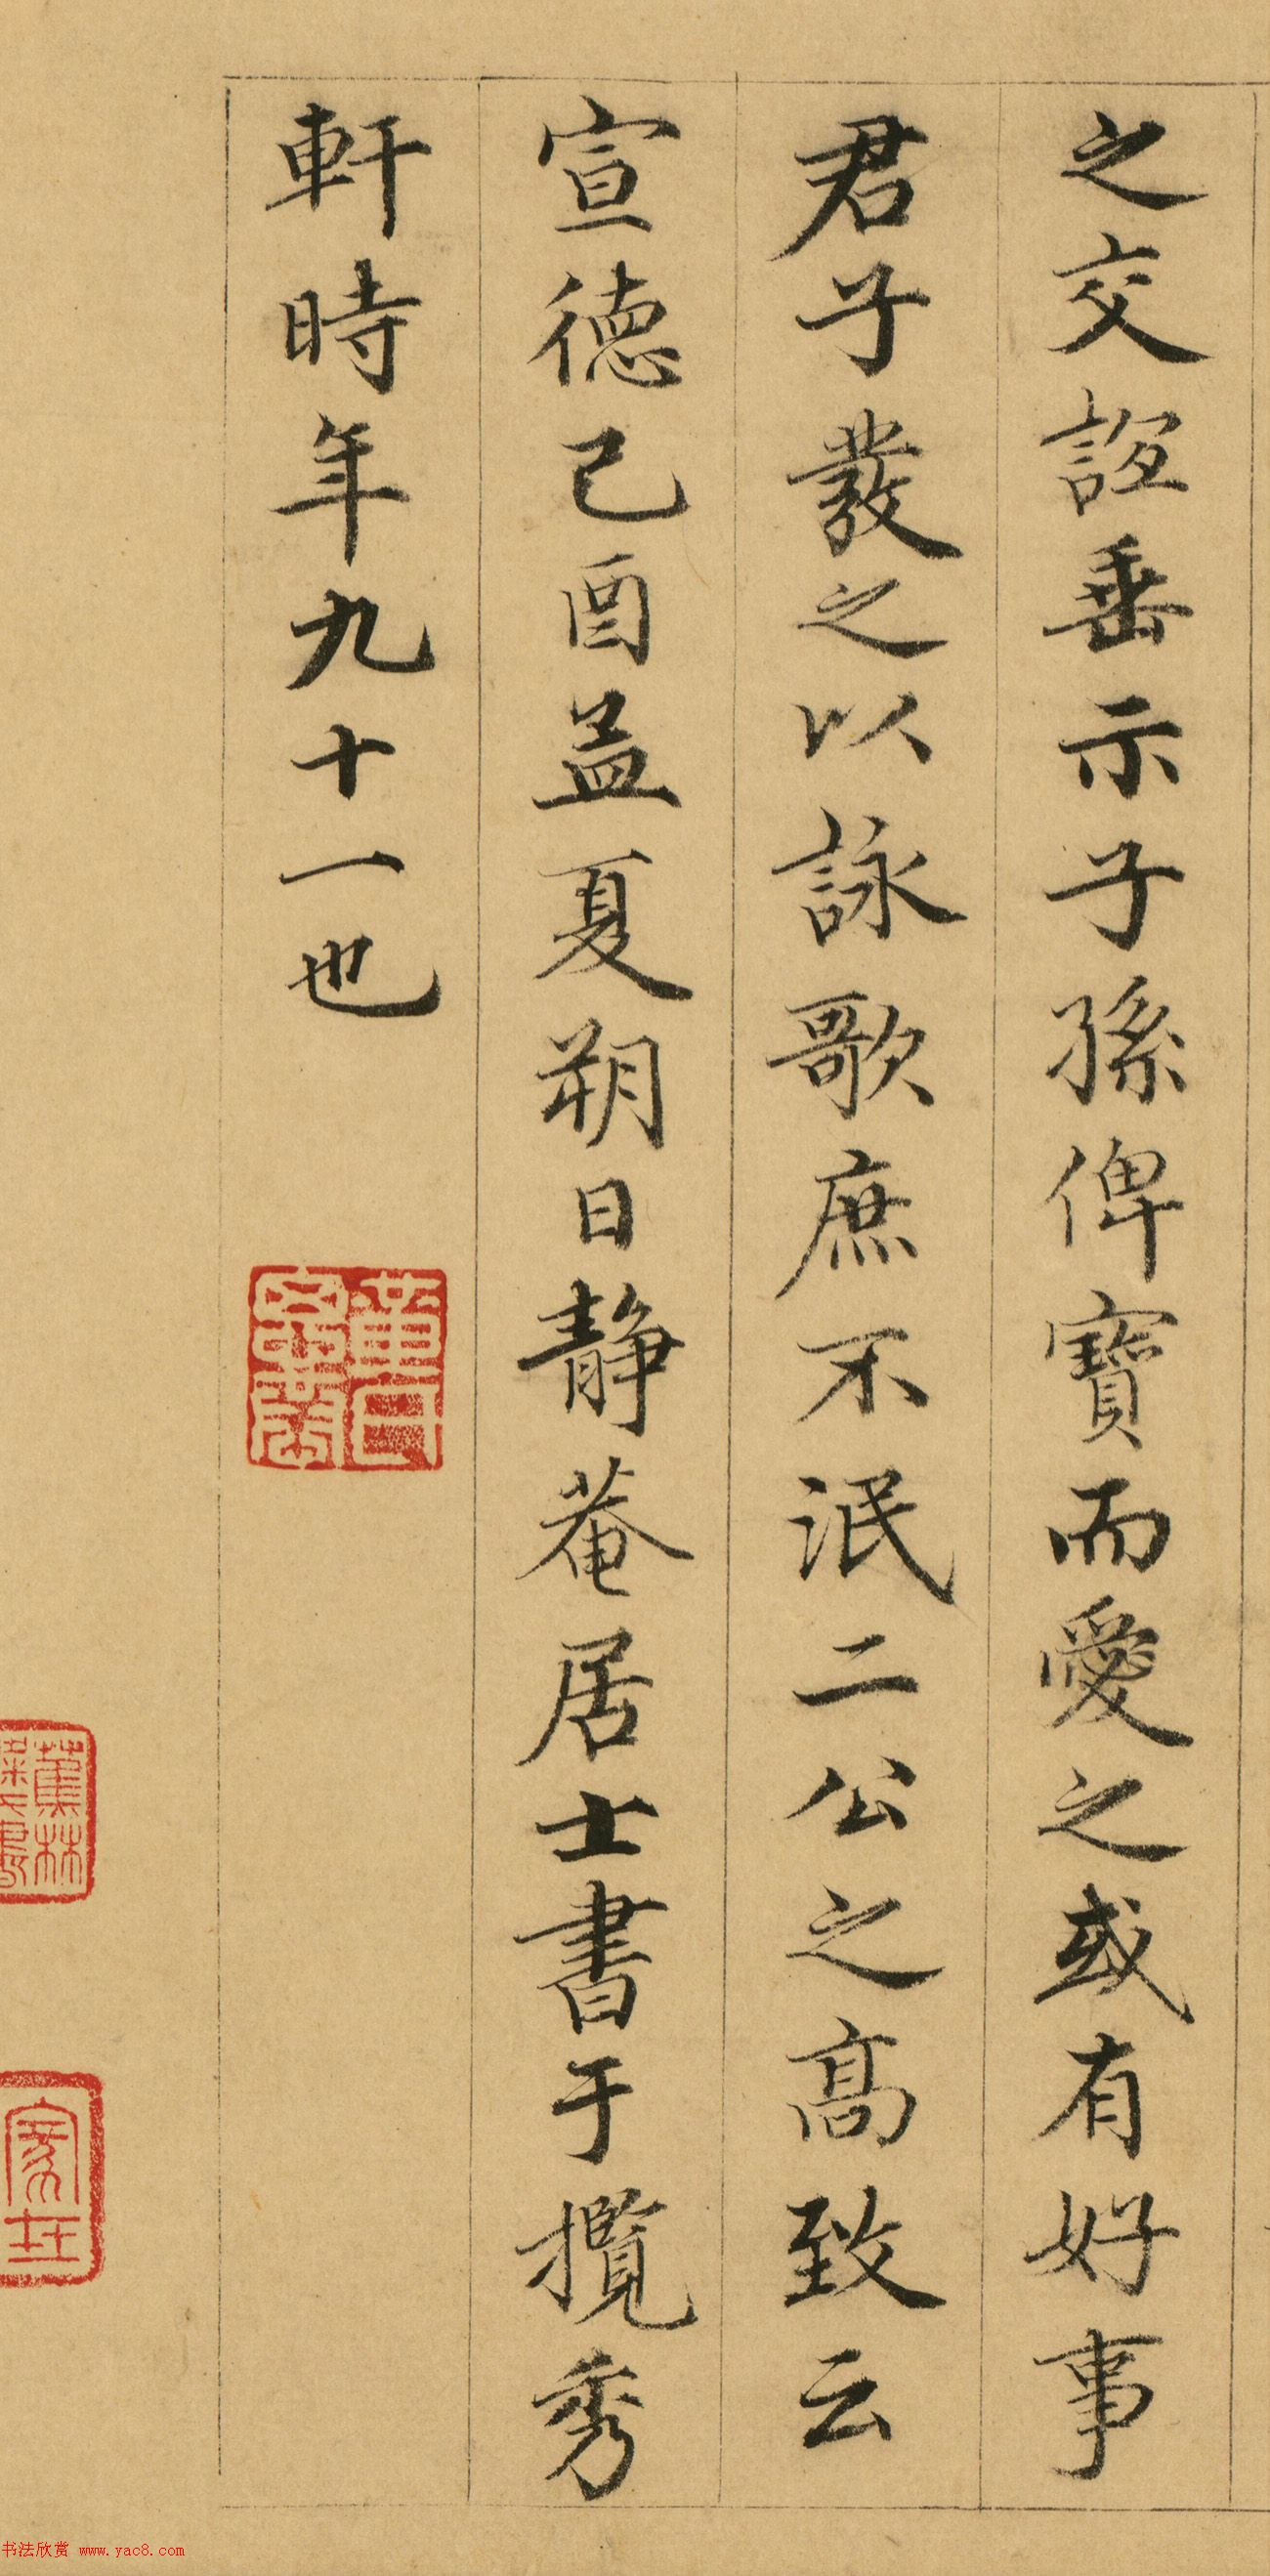 之交誼垂示子孫俾寶而愛之或有好事
君子發之以詠歌庶不泯二公之高致云
宣德己酉孟夏朔日靜菴居士書于攬秀
軒時年九十一也
蕉林
书法欣赏 www.yac8.com